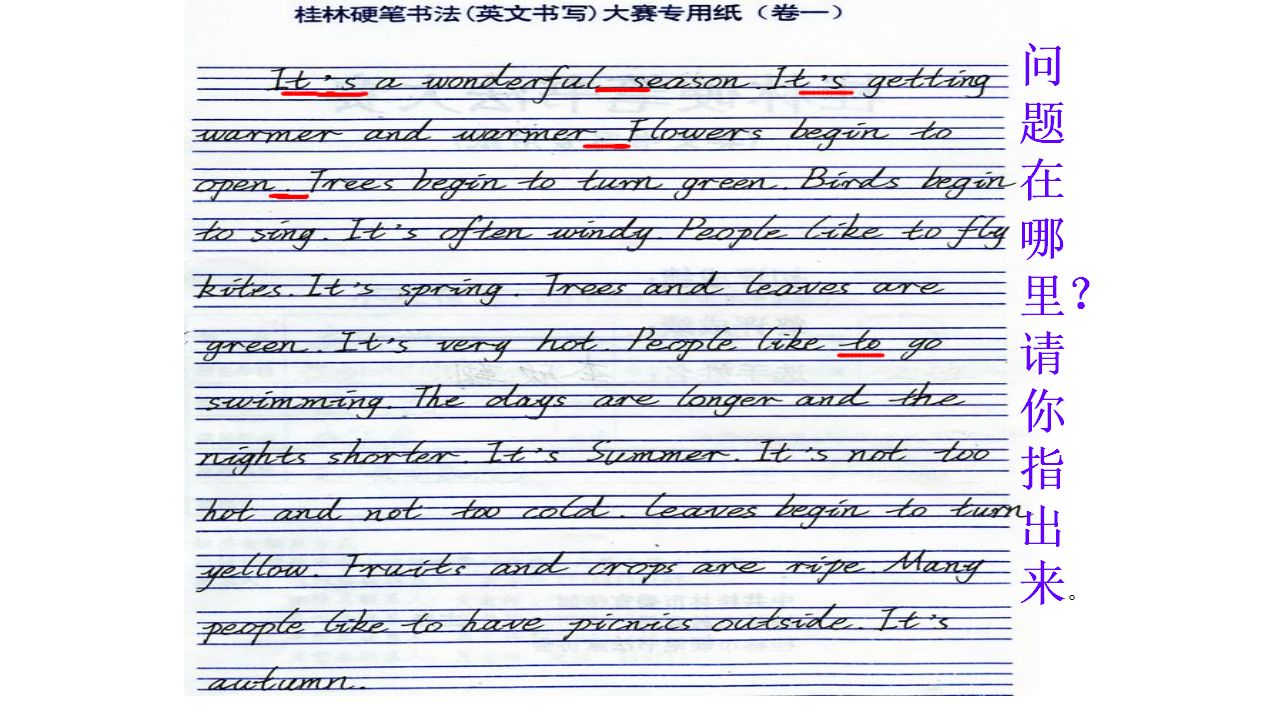 桂林硬笔书法(英文书写)大赛专用纸（卷一）
It's a wonderful season. It's getting
warmer and warmer. Flowers begin to
open. Trees begin to turn green. Birds begin
to sing. It's often windy People like to fly
kites. It's spring. Trees and leaves are
green. It's very hot. People like to go
swimming. The days are longer and the
nights shorter. It's Summer. It's not too
hot and not too cold. Leaves begin to turn
yellow. Fruits and crops are ripe. Many
people like to have picnics outside. It's
autumn.
问题在哪里？请你指出来。